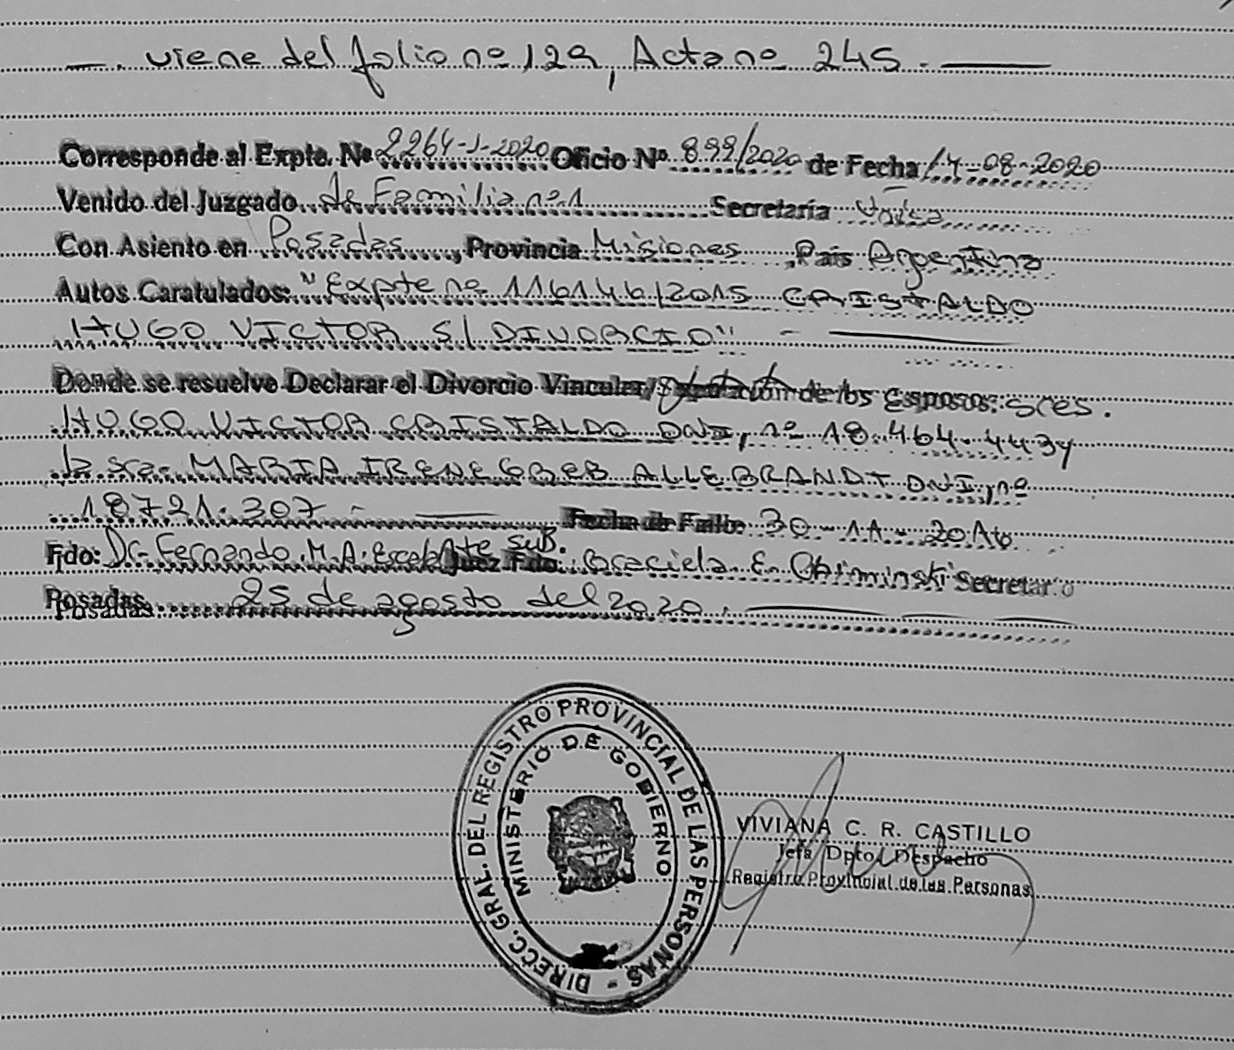 —. viene del folio nº 129, Acta nº 245.——
Corresponde al Expte. Nº 2264-J-2020 Oficio Nº 899/2020 de Fecha 14-08-2020
Venido del Juzgado de Familia nº 1 Secretaría Unica
Con Asiento en Posadas, Provincia Misiones, País Argentina
Autos Caratulados: "Expte nº 116146/2015 CRISTALDO
HUGO VICTOR S/ DIVORCIO" - ——
Donde se resuelve Declarar el Divorcio Vincular/ de los Esposos: sres.
HUGO VICTOR CRISTALDO DNI, nº 18.464.443 y
la sra. MARIA IRENE ALLEBRANDT DNI, nº
18721.307 - —— Fecha de Fallo: 30-11-20
Fdo: Dr. Fernando M.A. Escalante sub. Juez Fdo: Graciela E. Secretario
Posadas 25 de agosto del 2020. ——
DIRECC. GRAL. DEL REGISTRO PROVINCIAL DE LAS PERSONAS -
MINISTERIO DE GOBIERNO
VIVIANA C. R. CASTILLO
Jefa Dpto. Despacho
Registro Provincial de las Personas